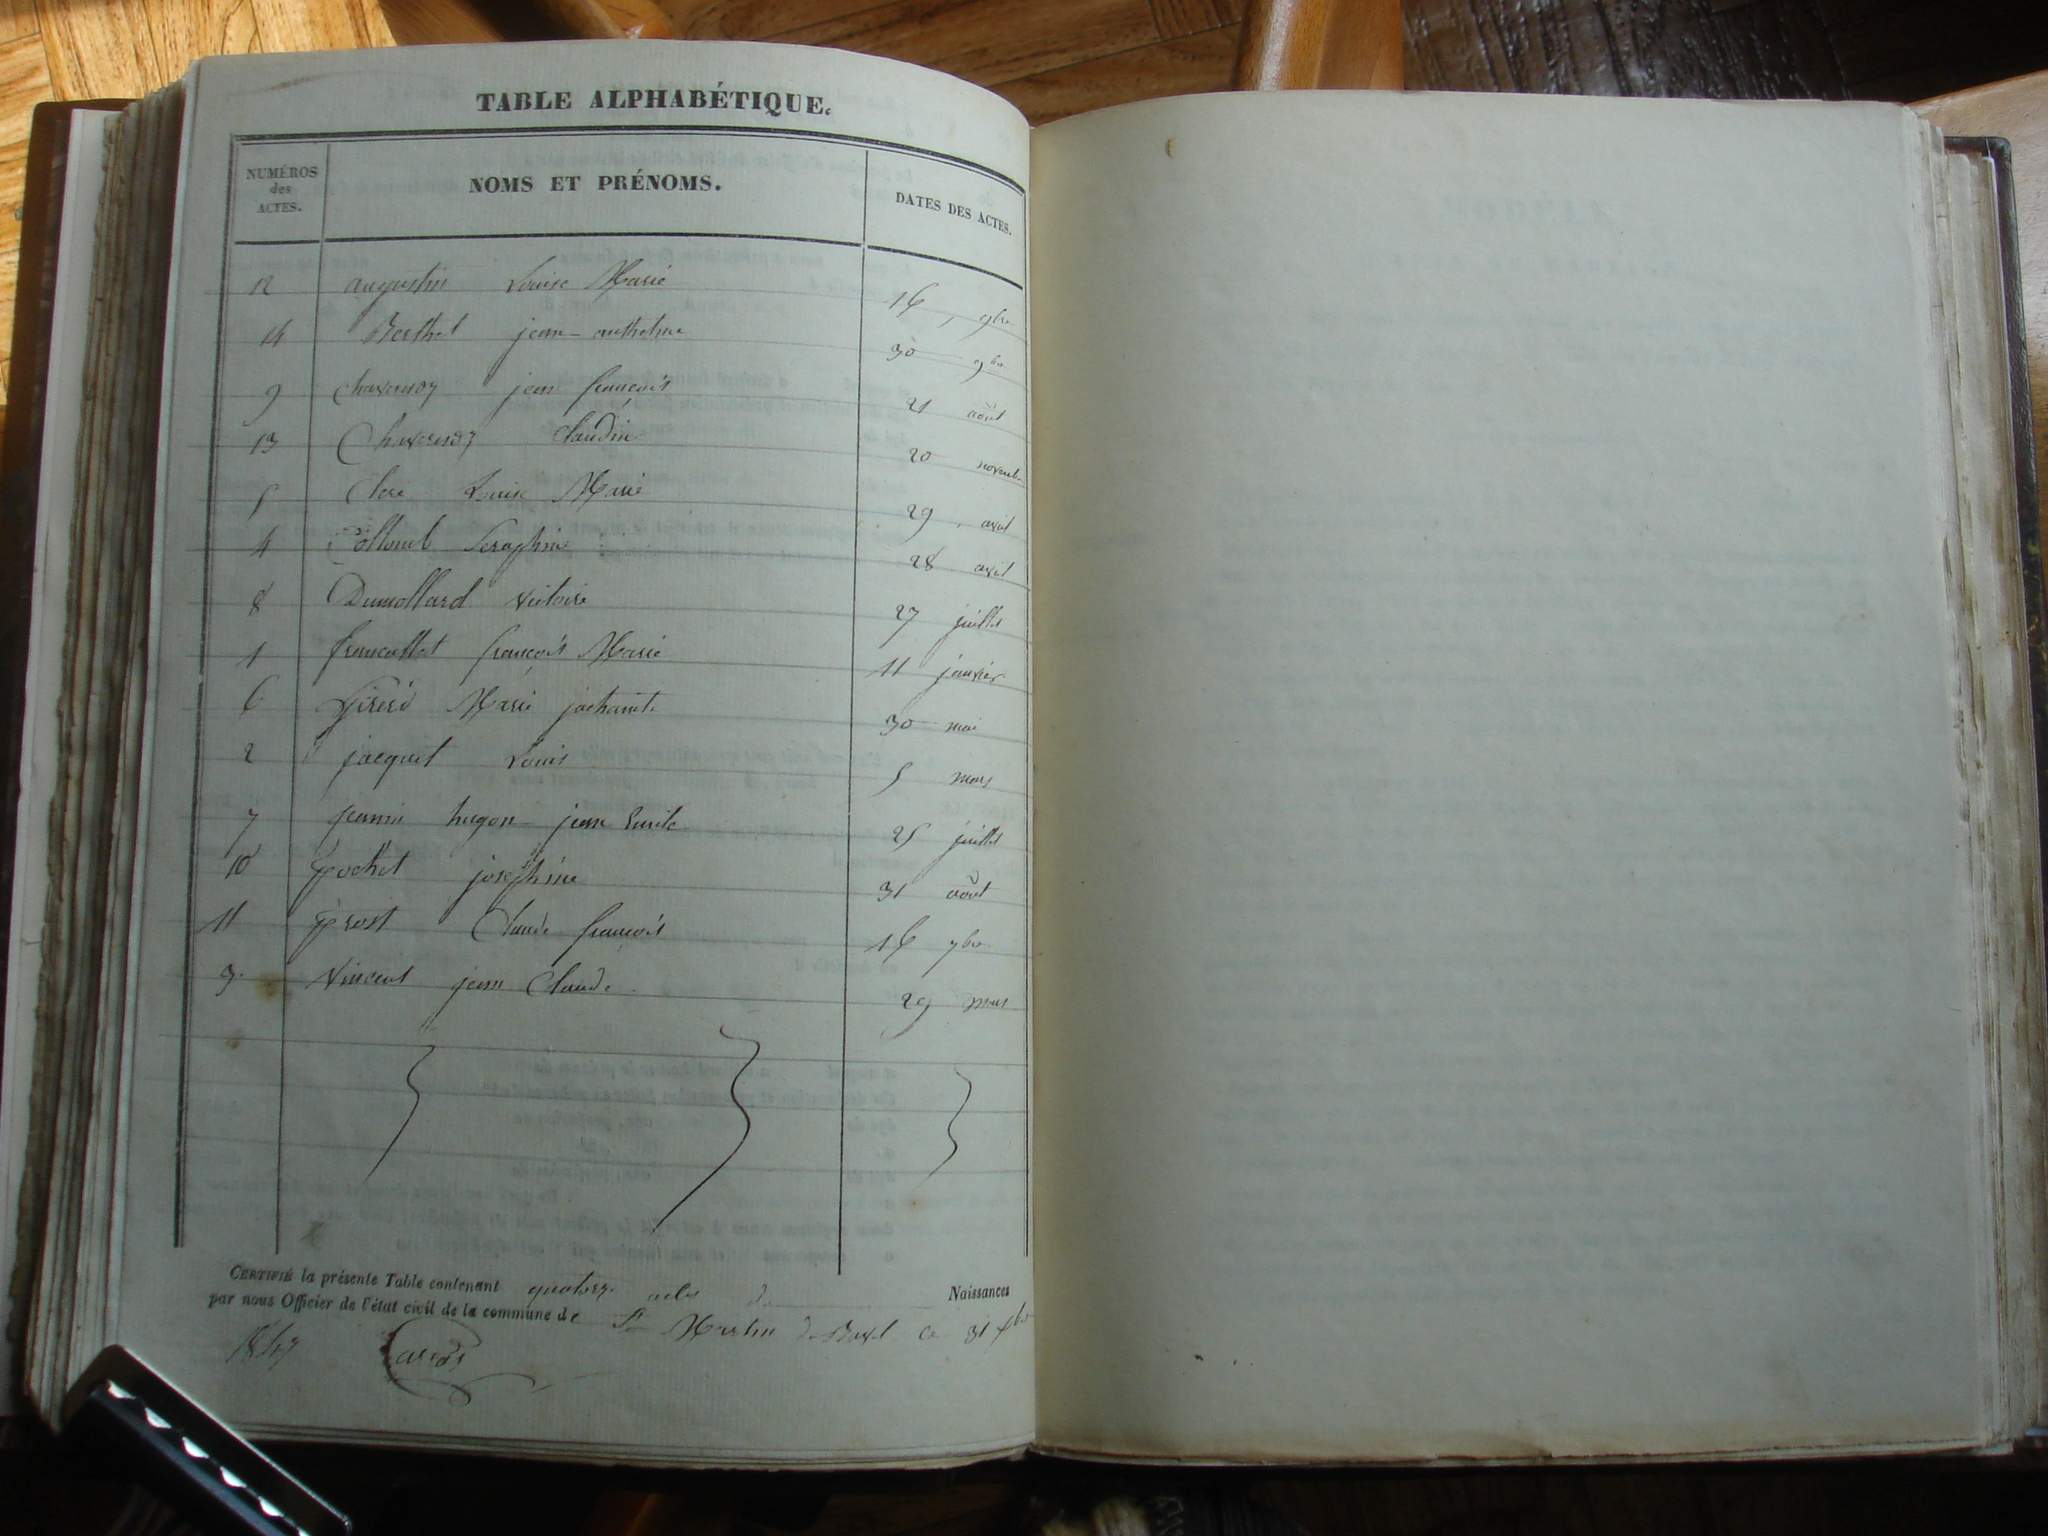 TABLE ALPHABÉTIQUE.
NUMÉROS des ACTES. NOMS ET PRÉNOMS. DATES DES ACTES.
12 augustin Louise Marie 16 9bre
14 Berthet jean-anthelme 30 9bre
9 Chavernoz jean françois 21 août
13 Chavernoz Claudine 20 novembre
5 Louise Marie 29 avril
4 Seraphine 28 avril
8 Dumollard victoire 27 juillet
1 françois Marie 11 janvier
6 Marie 30 mai
2 jacquet Louis 5 mars
7 jeannin hugon jean Emile 25 juillet
10 pochet joséphine 31 août
11 prost Claude françois 16 7bre
3 vincent jean Claude 29 mars
CERTIFIÉ la présente Table contenant quatorze actes de Naissances
par nous Officier de l'état civil de la commune de St Martin de Bavel ce 31 Xbre
1847